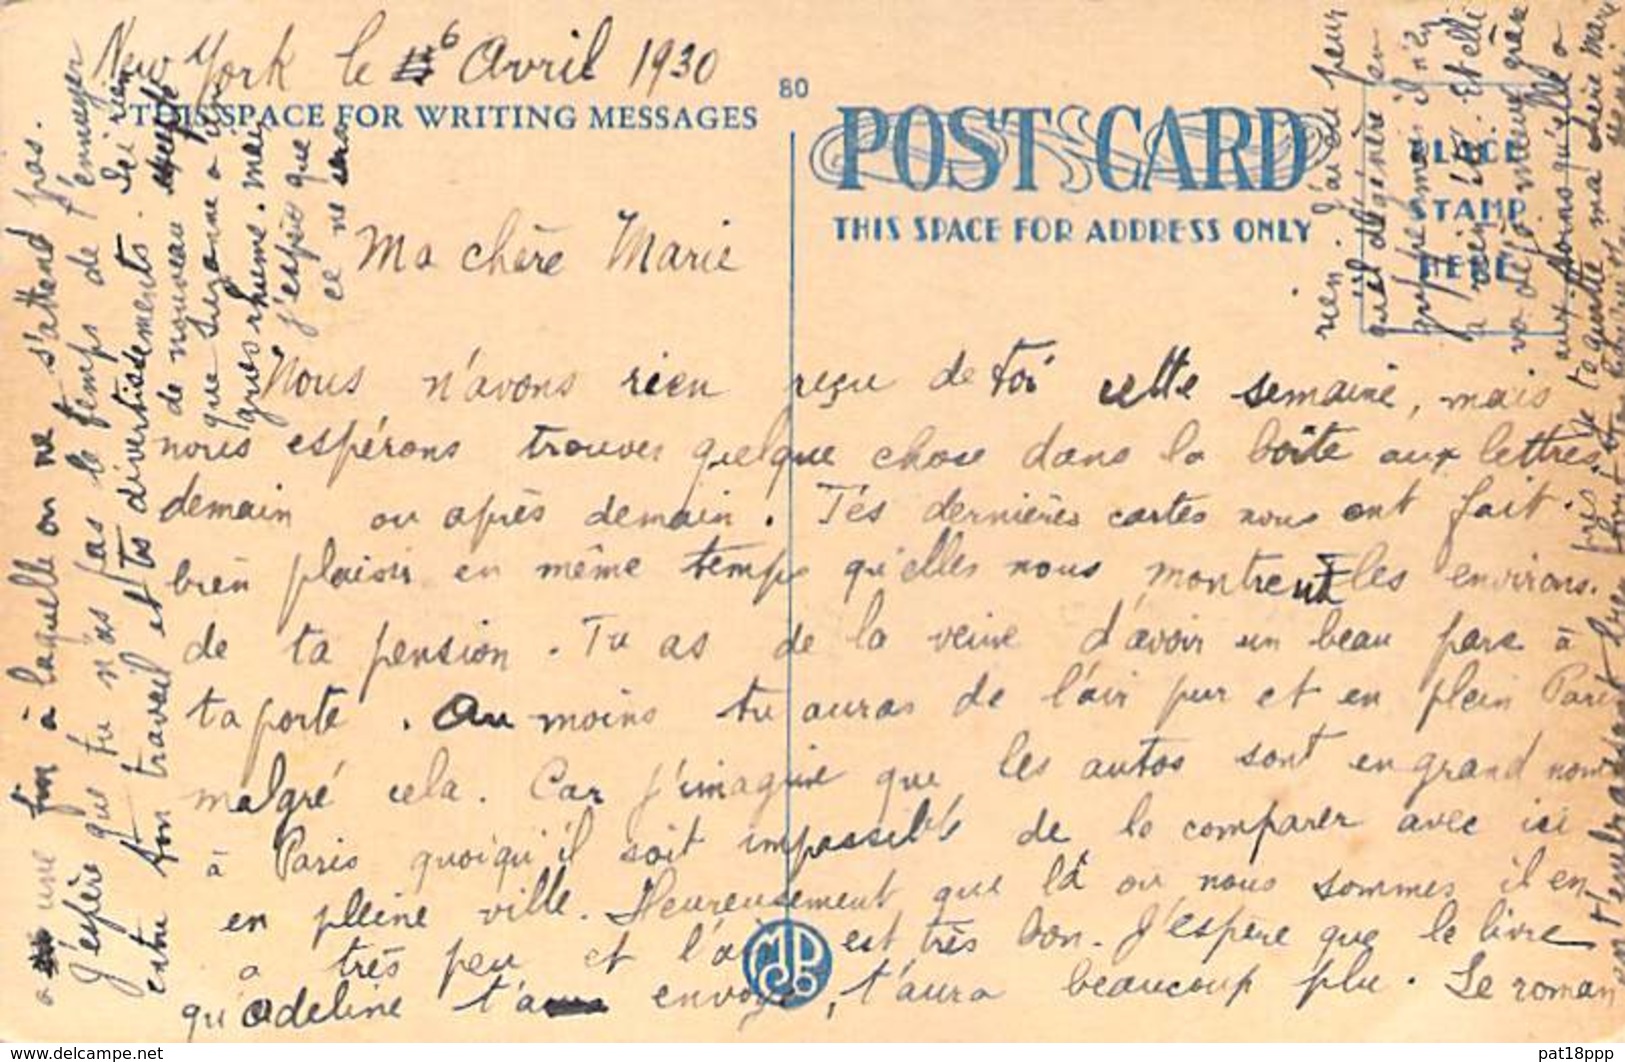 New York le 6 Avril 1930
THIS SPACE FOR WRITING MESSAGES
80
POST CARD
THIS SPACE FOR ADDRESS ONLY
PLACE
STAMP
HERE
Ma chère Marie
Nous n'avons rien reçu de toi cette semaine, mais
nous espérons trouver quelque chose dans la boîte aux lettres
demain ou après demain. Tés dernières cartes nous ont fait
bien plaisir en même temps qu'elles nous montrent les environs
de ta pension. Tu as de la veine d'avoir un beau parc à
ta porte. Au moins tu auras de l'air pur et en plein Paris
malgré cela. Car j'imagine que les autos sont en grand nom
à Paris quoiqu'il soit impossible de le comparer avec ici
en pleine ville. Heureusement que là ou nous sommes il en
a très peu et l'air est très bon. J'espère que le livre
qu'adeline t'a envoyé, t'aura beaucoup plu. Le roman
a une fin à laquelle on ne s'attend pas.
J'espère que tu n'as pas le temps de t'ennuyer
entre ton travail et tes divertissements. Ici rien
de nouveau excepté
que Suzanne a un
gros rhume. mais
j'espère que
ce ne sera
rien. J'ai eu peur
qu'il dégénère en
grippe mais il n'y
a rien eu. Et elle
va déjà mieux grâce
aux soins qu'elle a
pris. Je te quitte ma chère Marie
en t'embrassant bien fort
MDP Co
delcampe.net
pat18ppp